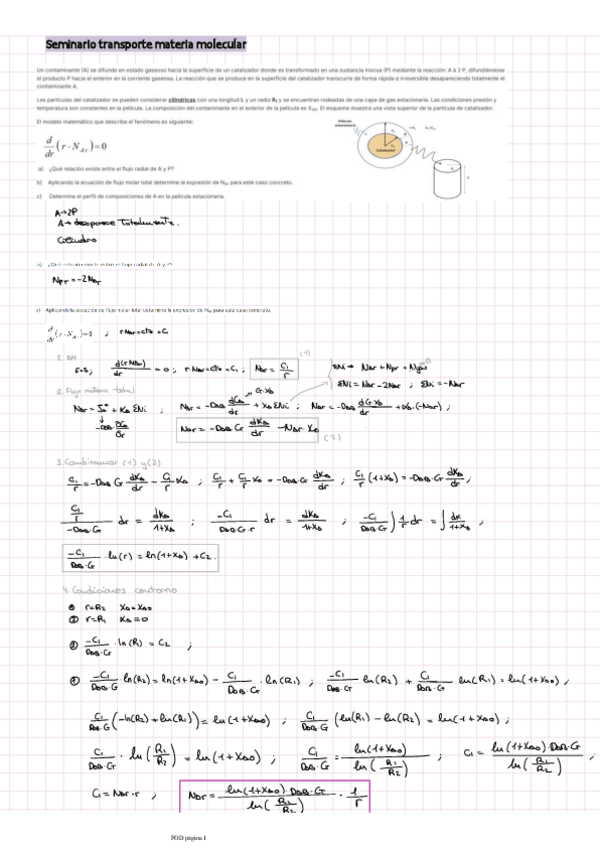 Seminario transporte materia molecular
Un contaminante (A) se difunde en estado gaseoso hacia la superficie de un catalizador donde es transformado en una sustancia inocua (P) mediante la reacción: A à 2 P, difundiéndose
el producto P hacia el exterior en la corriente gaseosa. La reacción que se produce en la superficie del catalizador transcurre de forma rápida e irreversible desapareciendo totalmente el
contaminante A.
Las partículas del catalizador se pueden considerar cilíndricas con una longitud L y un radio R₁ y se encuentran rodeadas de una capa de gas estacionaria. Las condiciones presión y
temperatura son constantes en la película. La composición del contaminante en el exterior de la película es X_A0. El esquema muestra una vista superior de la partícula de catalizador.
El modelo matemático que describe el fenómeno es siguiente:
Película
estacionaria
Catalizador
d/dr (r · N_Ar) = 0
a) ¿Qué relación existe entre el flujo radial de A y P?
b) Aplicando la ecuación de flujo molar total determine la expresión de N_Ar para este caso concreto.
c) Determine el perfil de composiciones de A en la película estacionaria.
A→2P
A→ desaparece totalmente.
Cilindro
a) ¿Qué relación existe entre el flujo radial de A y P?
N_Pr = -2N_Ar
Aplicando la ecuación de flujo molar total determine la expresión de N_Ar para este caso concreto.
d/dr (r · N_Ar) = 0 ; r·N_Ar = cte = C₁
d(r·N_Ar)/dr = 0 ; r·N_Ar = cte = C₁ ; N_Ar = C₁/r (1) ΣNi → N_Ar + N_Pr +
ΣNi = N_Ar - 2N_Ar ; ΣNi = -N_Ar
2. Flujo molar total
N_Ar = J_A* + X_A ΣNi ; N_Ar = -D_AB dC_A/dr + X_A ΣNi ; N_Ar = -D_AB dG·X_A/dr + X_A·(-N_Ar) ;
N_Ar = -D_AB·G dX_A/dr - N_Ar X_A (2)
3. Combinamos (1) y (2)
C₁/r = -D_AB·G dX_A/dr - C₁/r X_A ; C₁/r + C₁/r X_A = -D_AB·G dX_A/dr ; C₁/r (1+X_A) = -D_AB·G dX_A/dr ;
C₁/r / -D_AB·G dr = dX_A/1+X_A ; -C₁/D_AB·G·r dr = dX_A/1+X_A ; -C₁/D_AB·G ∫ 1/r dr = ∫ dX/1+X_A ;
-C₁/D_AB·G ln(r) = ln(1+X_A) + C₂.
4. Condiciones contorno
① r=R₂ X_A=X_A0
② r=R₁ X_A=0
② -C₁/D_AB·G · ln(R₁) = C₂ ;
① -C₁/D_AB·G ln(R₂) = ln(1+X_A0) - C₁/D_AB·G · ln(R₁) ; -C₁/D_AB·G ln(R₂) + C₁/D_AB·G ln(R₁) = ln(1+X_A0) ;
C₁/D_AB·G (-ln(R₂)+ln(R₁)) = ln(1+X_A0) ; C₁/D_AB·G (ln(R₁) - ln(R₂)) = ln(1+X_A0) ;
C₁/D_AB·G · ln(R₁/R₂) = ln(1+X_A0) ; C₁/D_AB·G = ln(1+X_A0)/ln(R₁/R₂) ; C₁ = ln(1+X_A0)·D_AB·G/ln(R₁/R₂) ;
C₁ = N_Ar·r ; N_Ar = ln(1+X_A0)·D_AB·G/ln(R₁/R₂) · 1/r
POD página 1